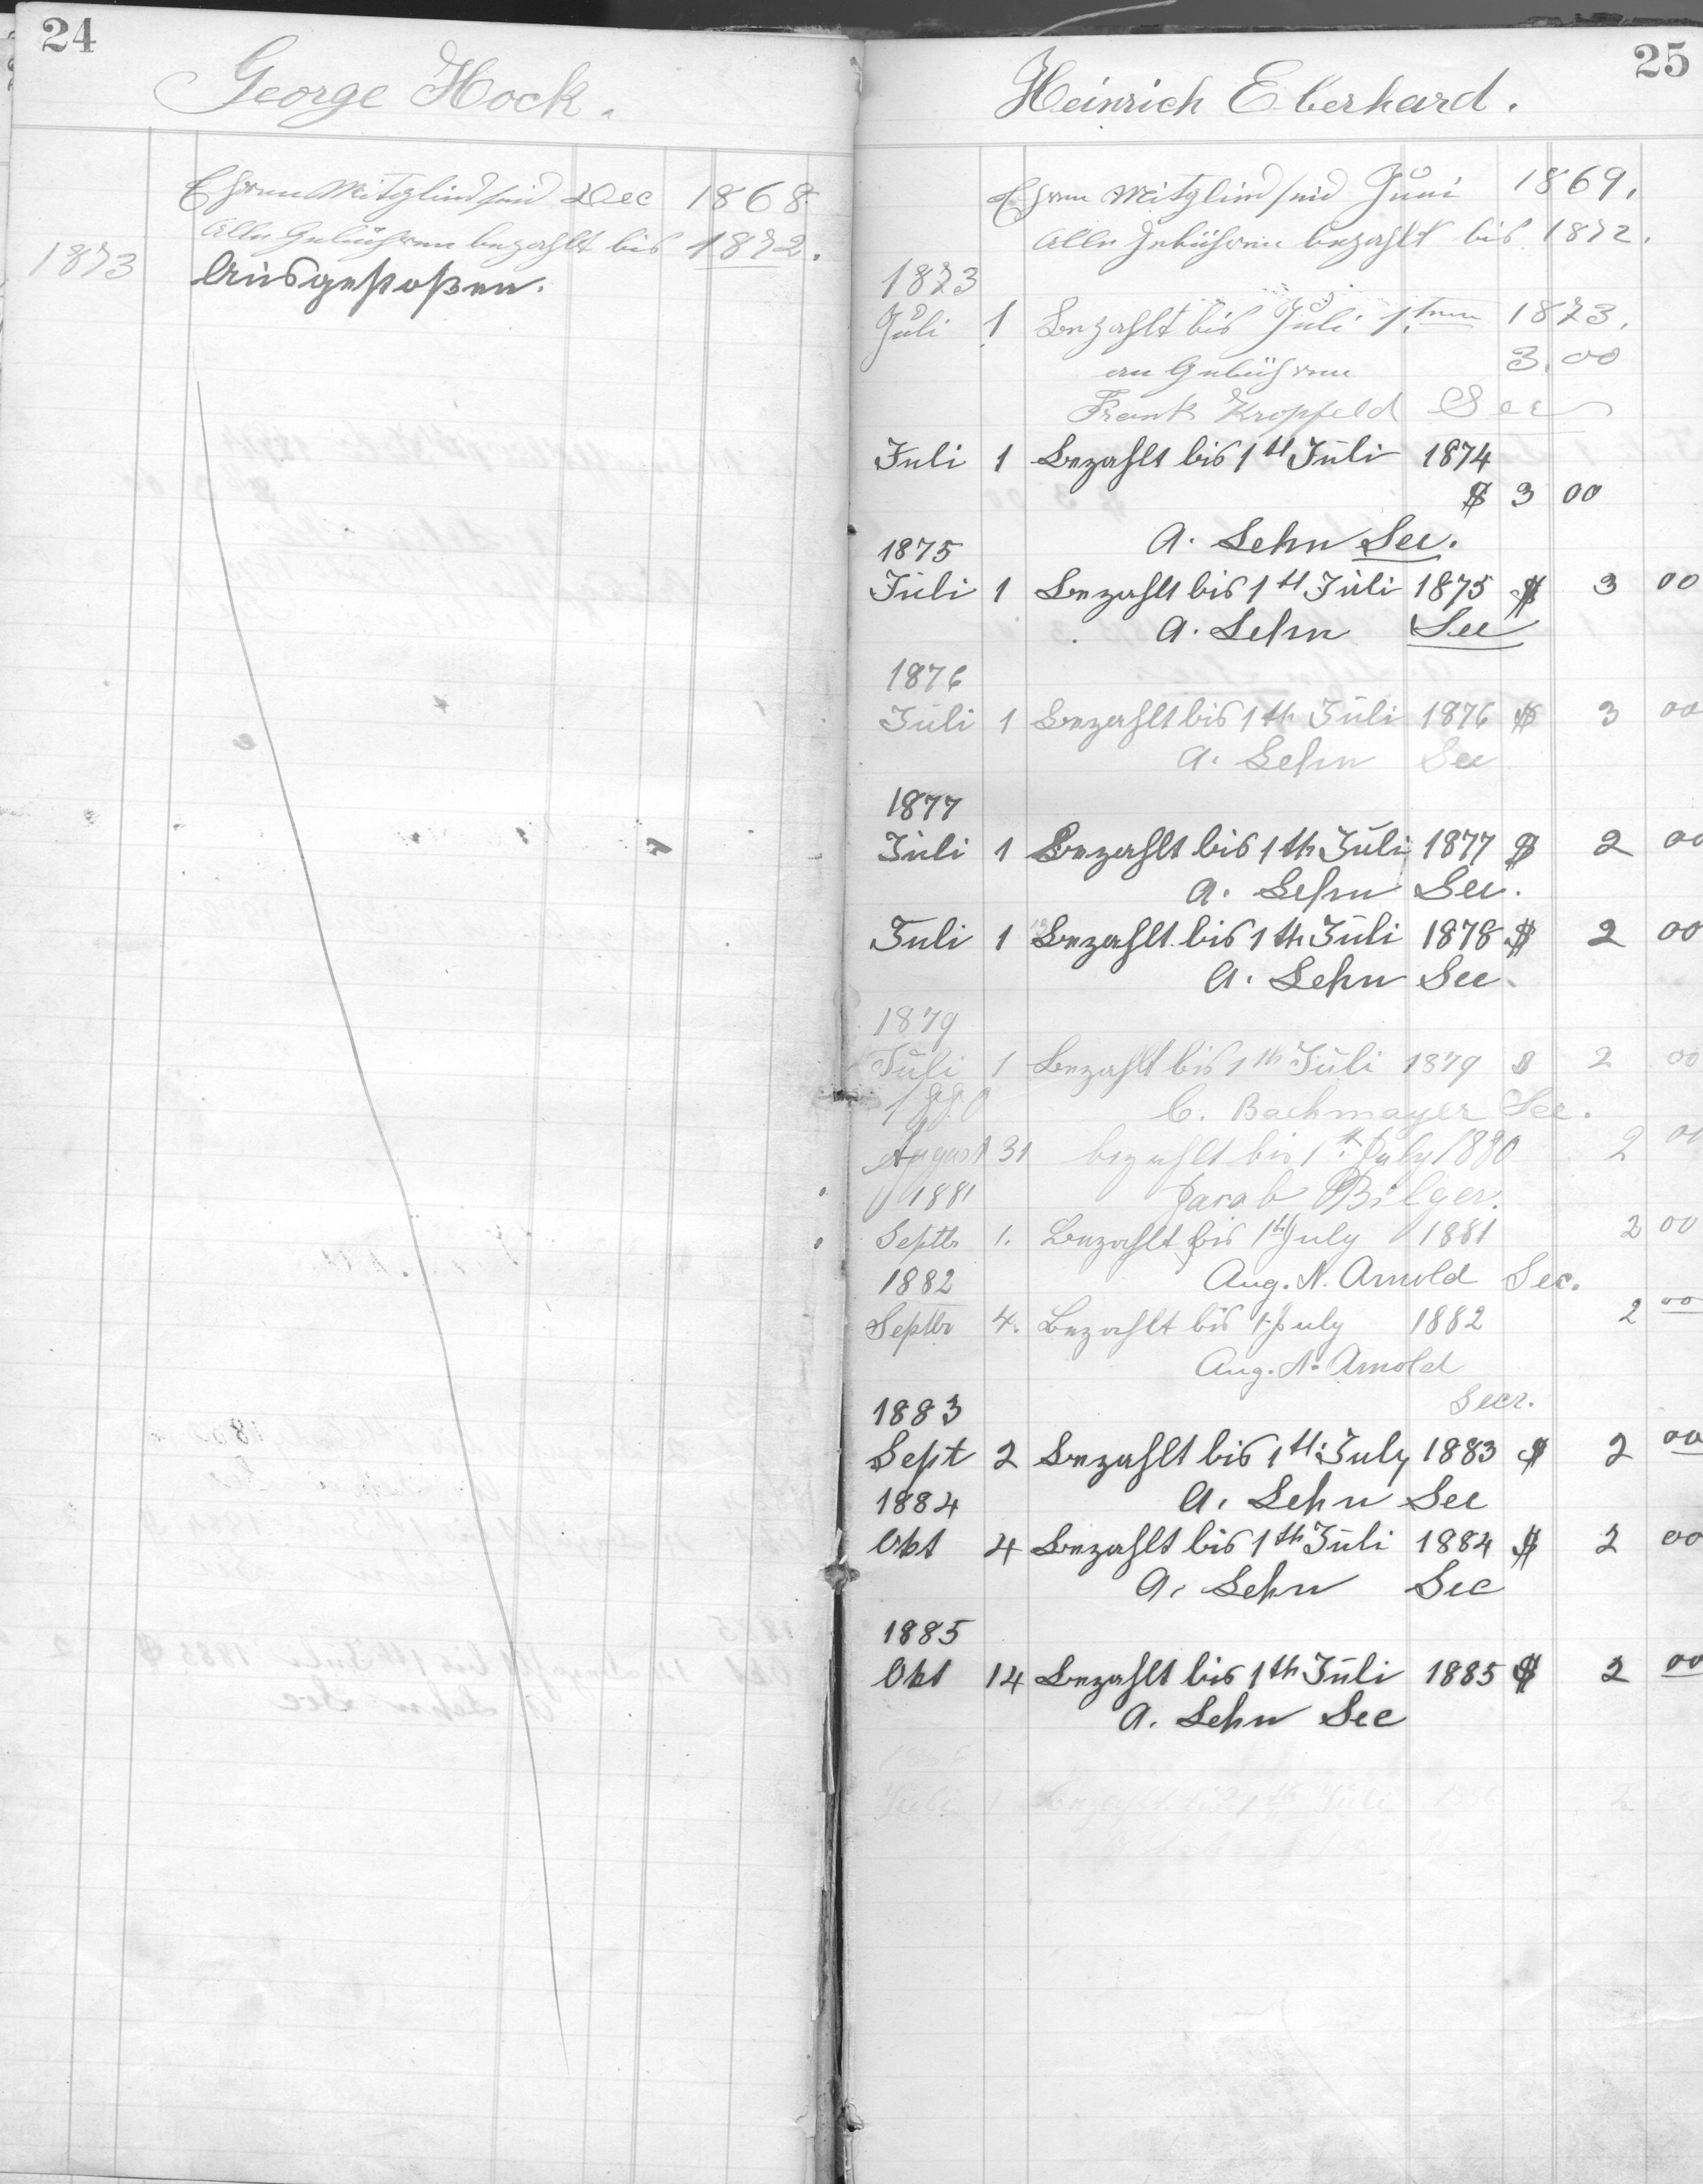 24
George Hock.
Ehren Mitglied seid Dec 1868.
Alle Gebühren bezahlt bis 1872.
1873 Ausgestoßen.
25
Heinrich Eberhard.
Ehren Mitglied seid Juni 1869.
Alle Gebühren bezahlt bis 1872.
1873
Juli 1 Bezahlt bis Juli 1.ten 1873.
an Gebühren 3.00
Frank Kropfeld Sec
Juli 1 Bezahlt bis 1th Juli 1874
$ 3 00
A. Lehn Sec.
1875
Juli 1 Bezahlt bis 1th Juli 1875 $ 3 00
A. Lehn Sec
1876
Juli 1 Bezahlt bis 1th Juli 1876 $ 3 00
A. Lehn Sec
1877
Juli 1 Bezahlt bis 1th Juli 1877 $ 2 00
A. Lehn Sec.
Juli 1 Bezahlt bis 1th Juli 1878 $ 2 00
A. Lehn Sec.
1879
Juli 1 Bezahlt bis 1th Juli 1879 $ 2 00
1880 C. Bachmayer Sec.
August 31 bezahlt bis 1th July 1880 2 00
1881 Jacob Bilger.
Septb 1. Bezahlt bis 1th July 1881 2 00
1882 Aug. N. Arnold Sec.
Septbr 4. Bezahlt bis 1 July 1882 2 00
Aug. N. Arnold
Secr.
1883
Sept 2 Bezahlt bis 1th July 1883 $ 2 00
1884 A. Lehn Sec
Okt 4 Bezahlt bis 1th Juli 1884 $ 2 00
A. Lehn Sec
1885
Okt 14 Bezahlt bis 1th Juli 1885 $ 2 00
A. Lehn Sec
Juli 1 Bezahlt bis 1th Juli 2